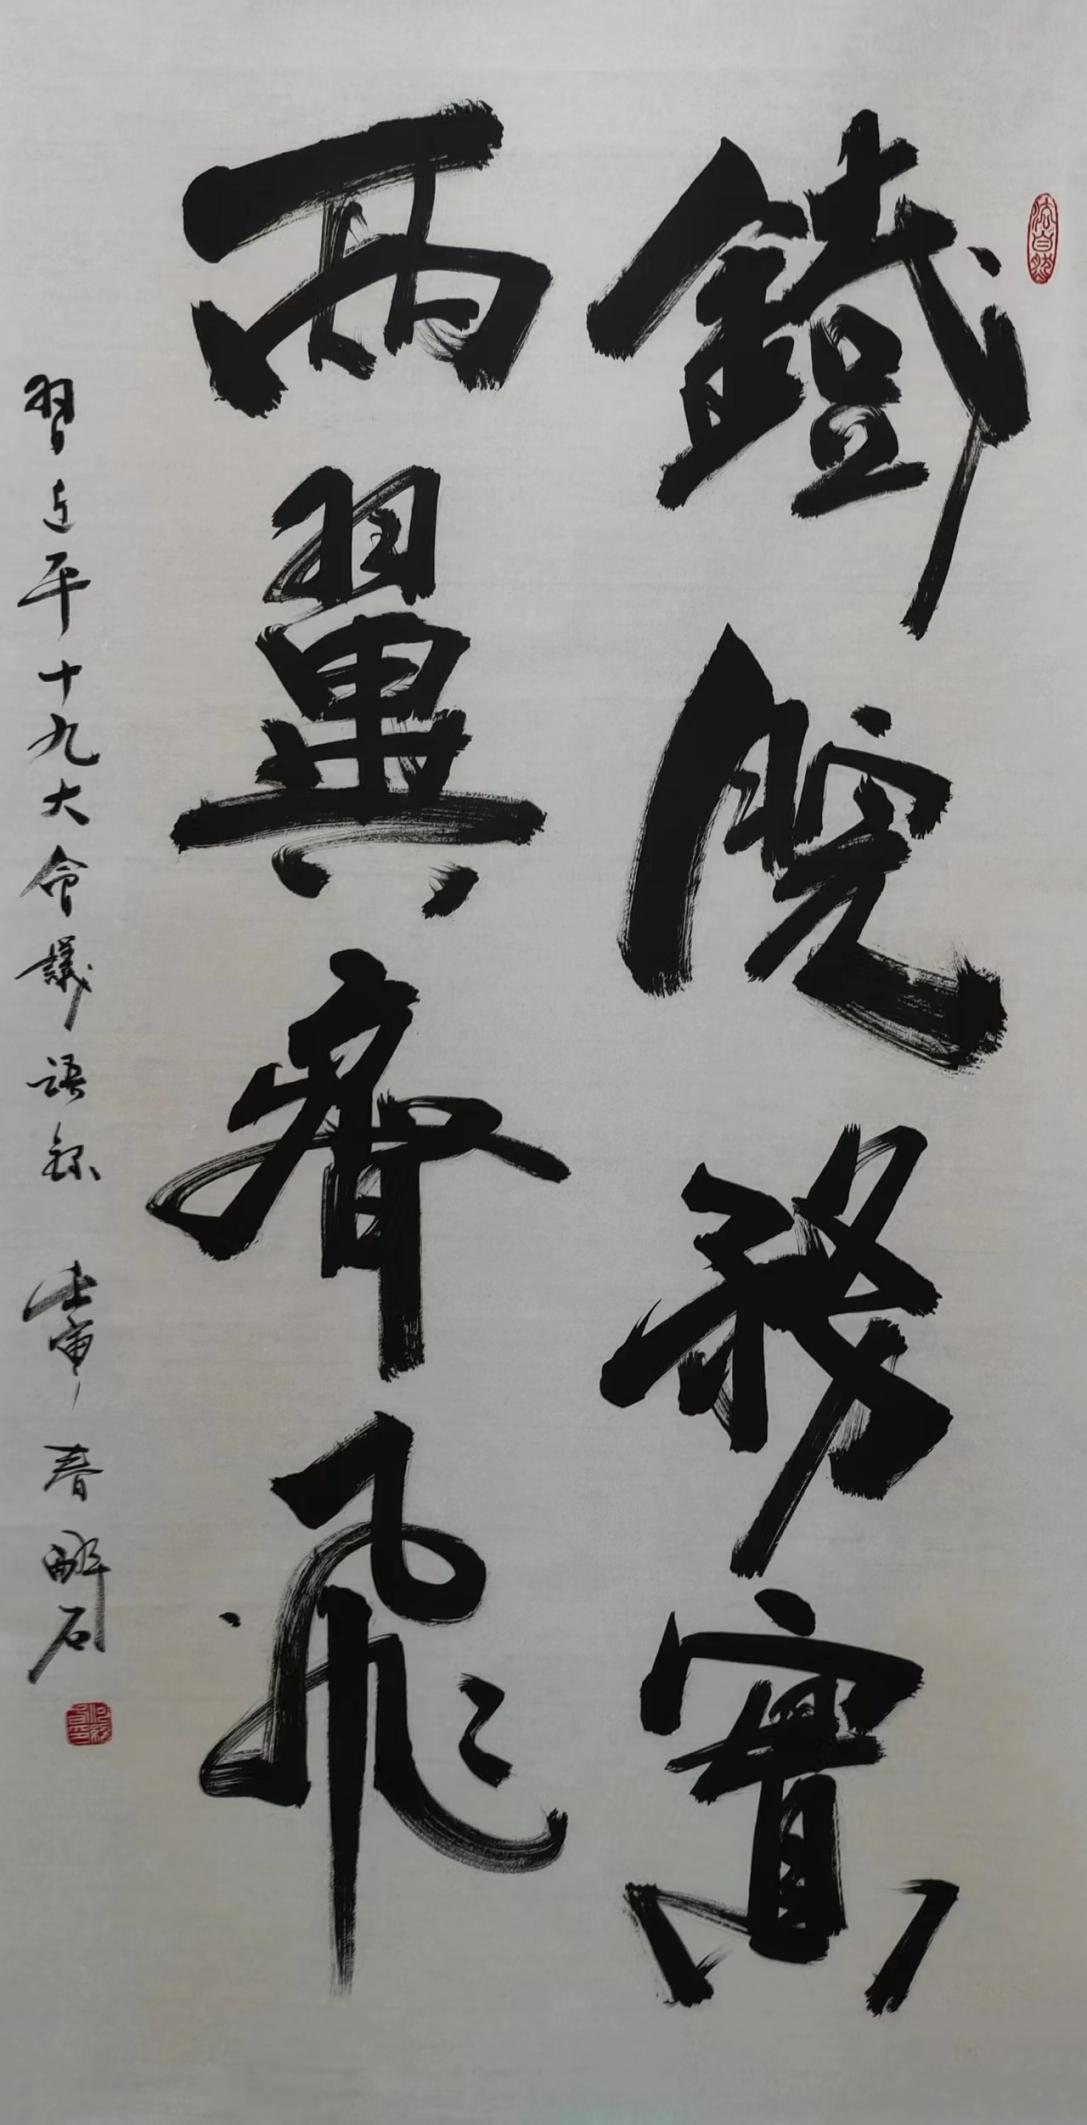 鐵腕務實
兩翼齊飛
習近平十九大會議語錄 壬寅春 解石
法自然